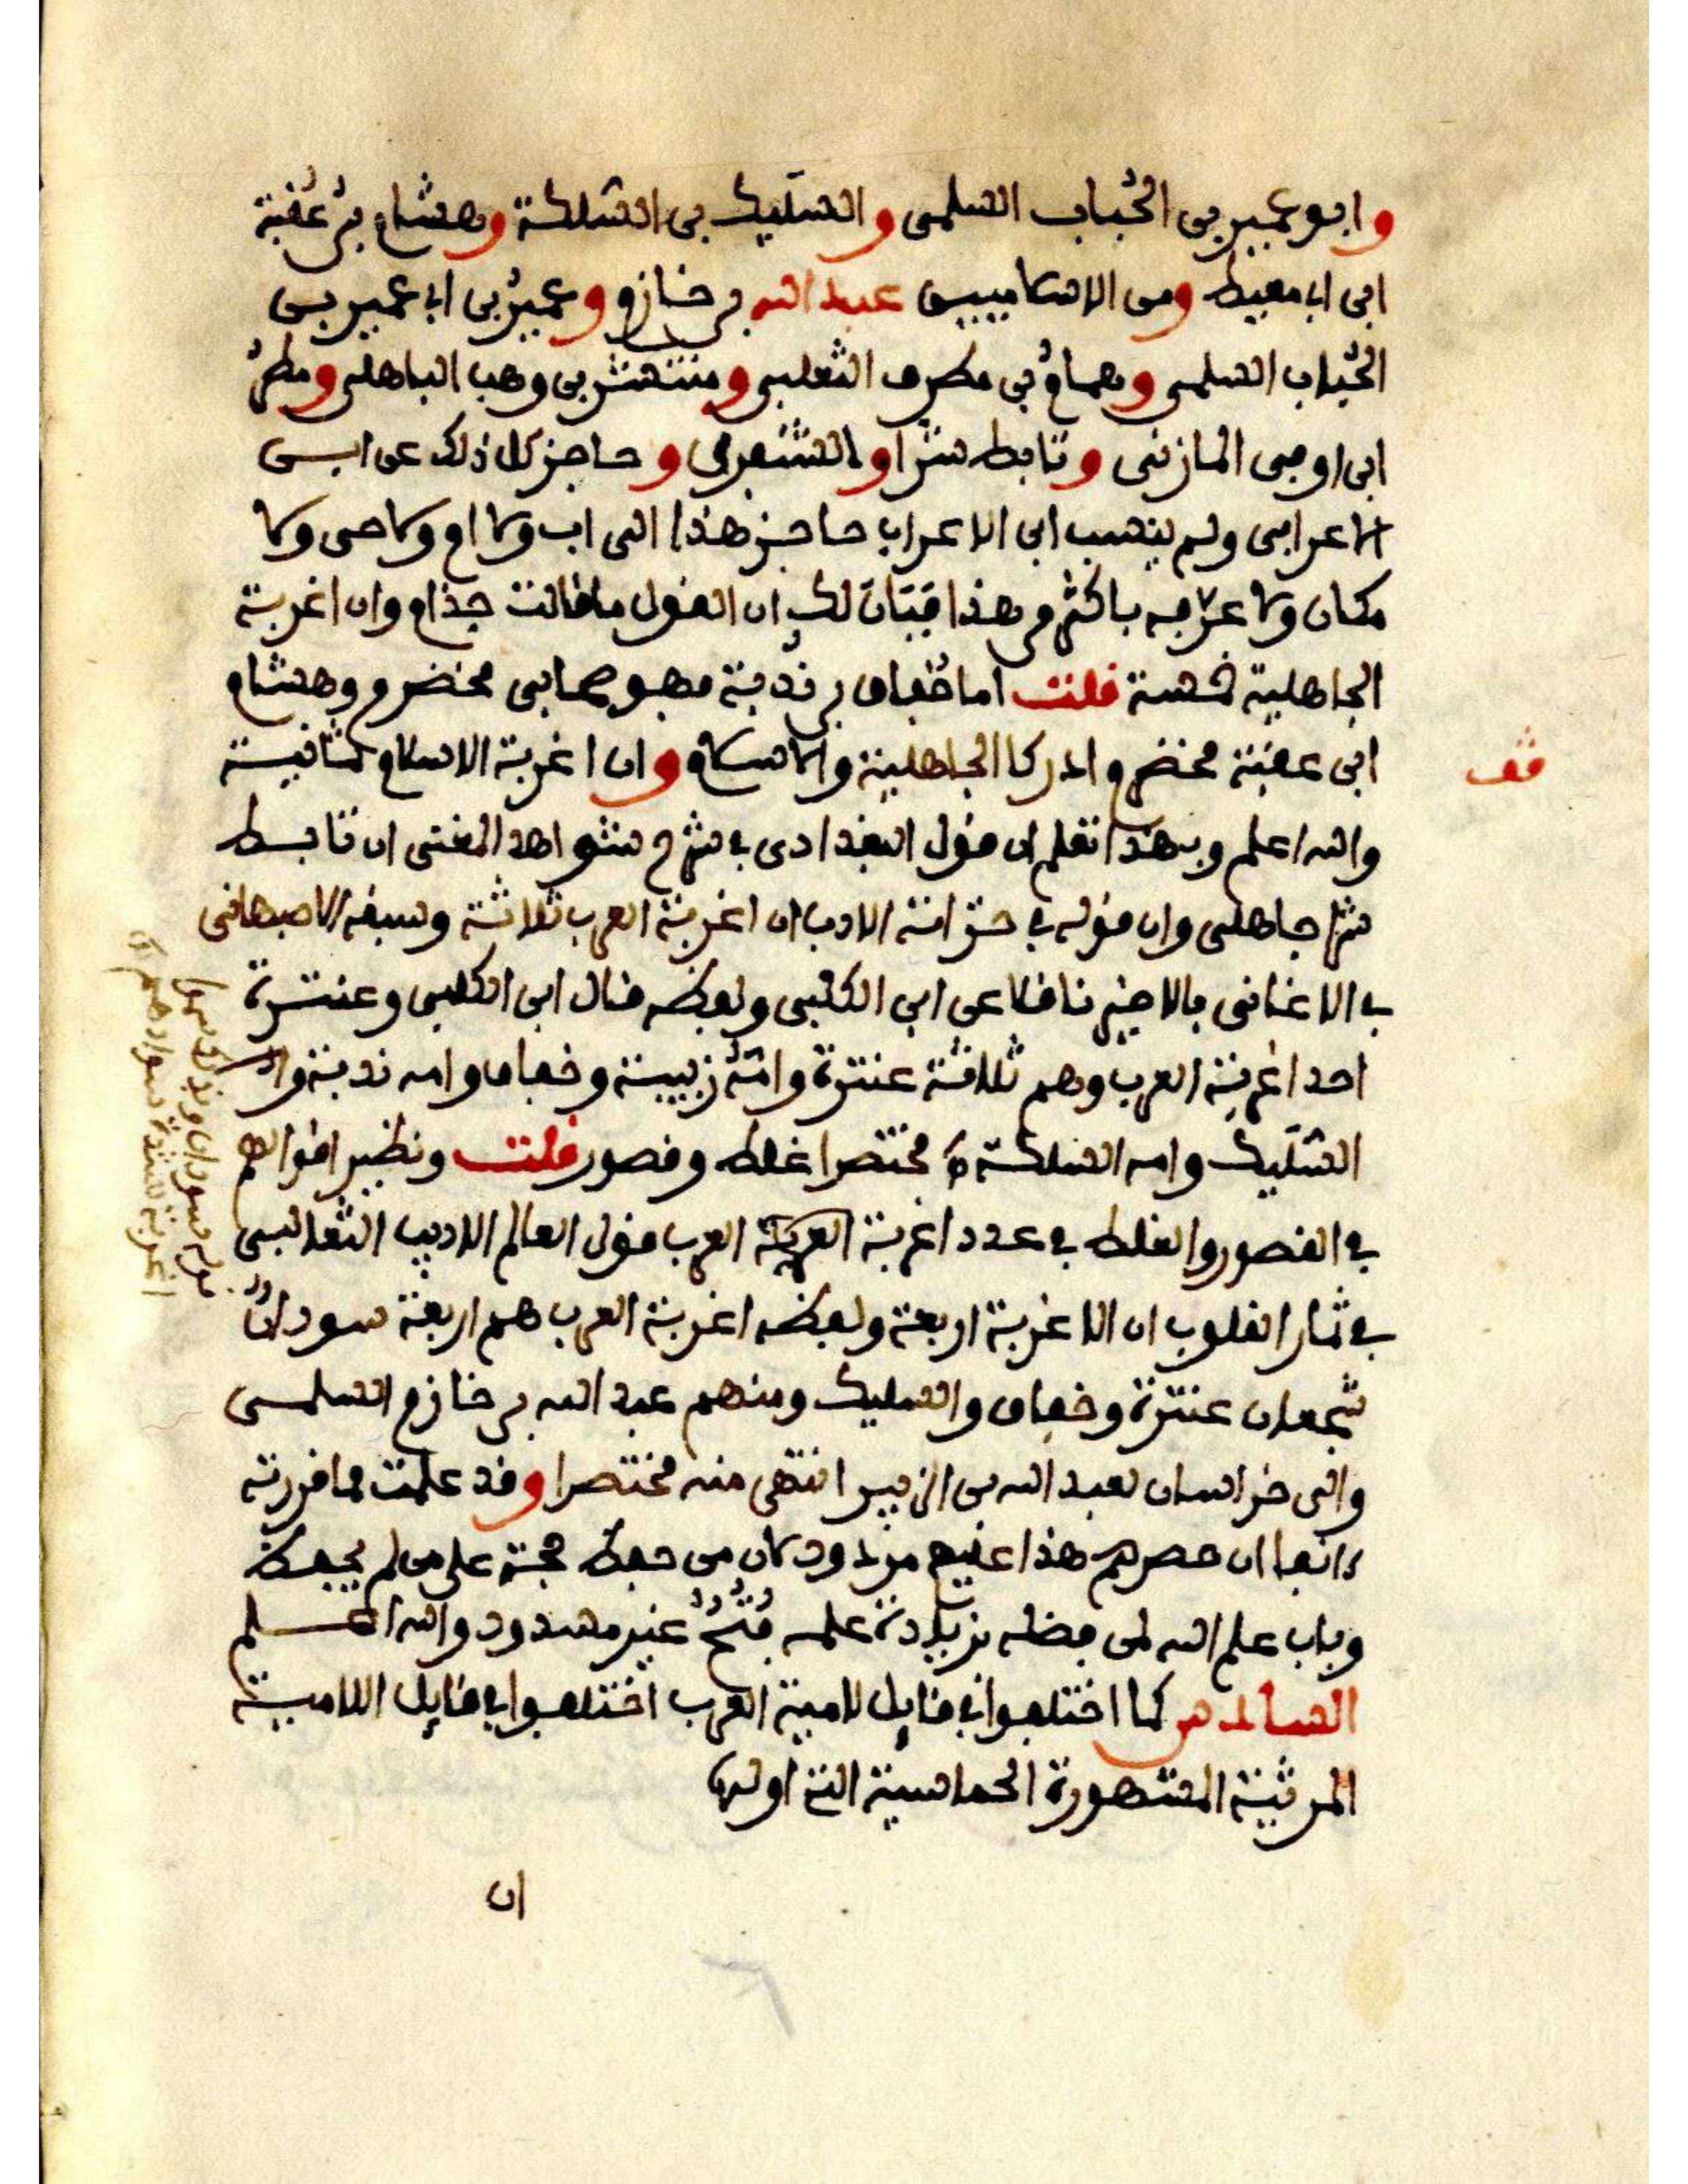 وابو عمير بن الحُباب السلمى والسُّلَيك بن السُّلَكة وهشام بن عُقبة
ابن ابى معيط ومن الاسلاميين عبد الله بن خازم وعمير بن ابى عمير بن
الحُباب السلمى وهمام بن مطرف التغلبى ومنتشر بن وهب الباهلى ومطر
ابن اوفى المازنى وتابط شرا والشنفرى وحاجز كل ذلك عن ابن
الاعرابى ولم ينسب ابن الاعرابى حاجز هذا الى اب ولا ام ولا حى ولا
مكان ولا عرّفه باكثر من هذا فبَانَ لك ان القول ما قالت حذام وان اغربة
الجاهلية خمسة قلت اما خُفاف بن نُدبة فهو صحابى مخضرم وهشام
ابن عقبة مخضرم ادركا الجاهلية والاسلام وان اغربة الاسلام ثمانية
قف
والله اعلم وبهذا تعلم ان قول البغدادى فى شرح شواهد المغنى ان تابط
شرا جاهلى وان قوله فى خزانة الادب ان اغربة العرب ثلاثة وسبقه الاصبهانى
فى الاغانى بالاخير ناقلا عن ابن الكلبى ولفظه قال ابن الكلبى وعنترة
احد اغربة العرب وهم ثلاثة عنترة وامُّه زبيبة وخفاف وامه ندبة و
السُّلَيك وامه السلكة ه مختصرا غلط وقصور قلت ونظير اقوالهم
فى القصور والغلط فى عدد اغربة العرب قول العالم الاديب الثعالبى
فى ثمار القلوب ان الاغربة اربعة ولفظه اغربة العرب هم اربعة سودانٌ
شجعان عنترة وخفاف والسليك ومنهم عبد الله بن خازم السلمى
والى خراسان لعبد الله بن الزبير انتهى منه مختصرا وقد علمت مما قررته
انفا ان حصرهم هذا عليهم مردود لان من حفظ حجة على من لم يحفظ
وباب علم الله لمن فضله بزيادة علمه فُتُحٌ غير مسدود والله اعلم
السادس كما اختلفوا فى قايل لامية العرب اختلفوا فى قايل اللامية
المرثية المشهورة الحماسية التى اولها
ان
قوله سودان